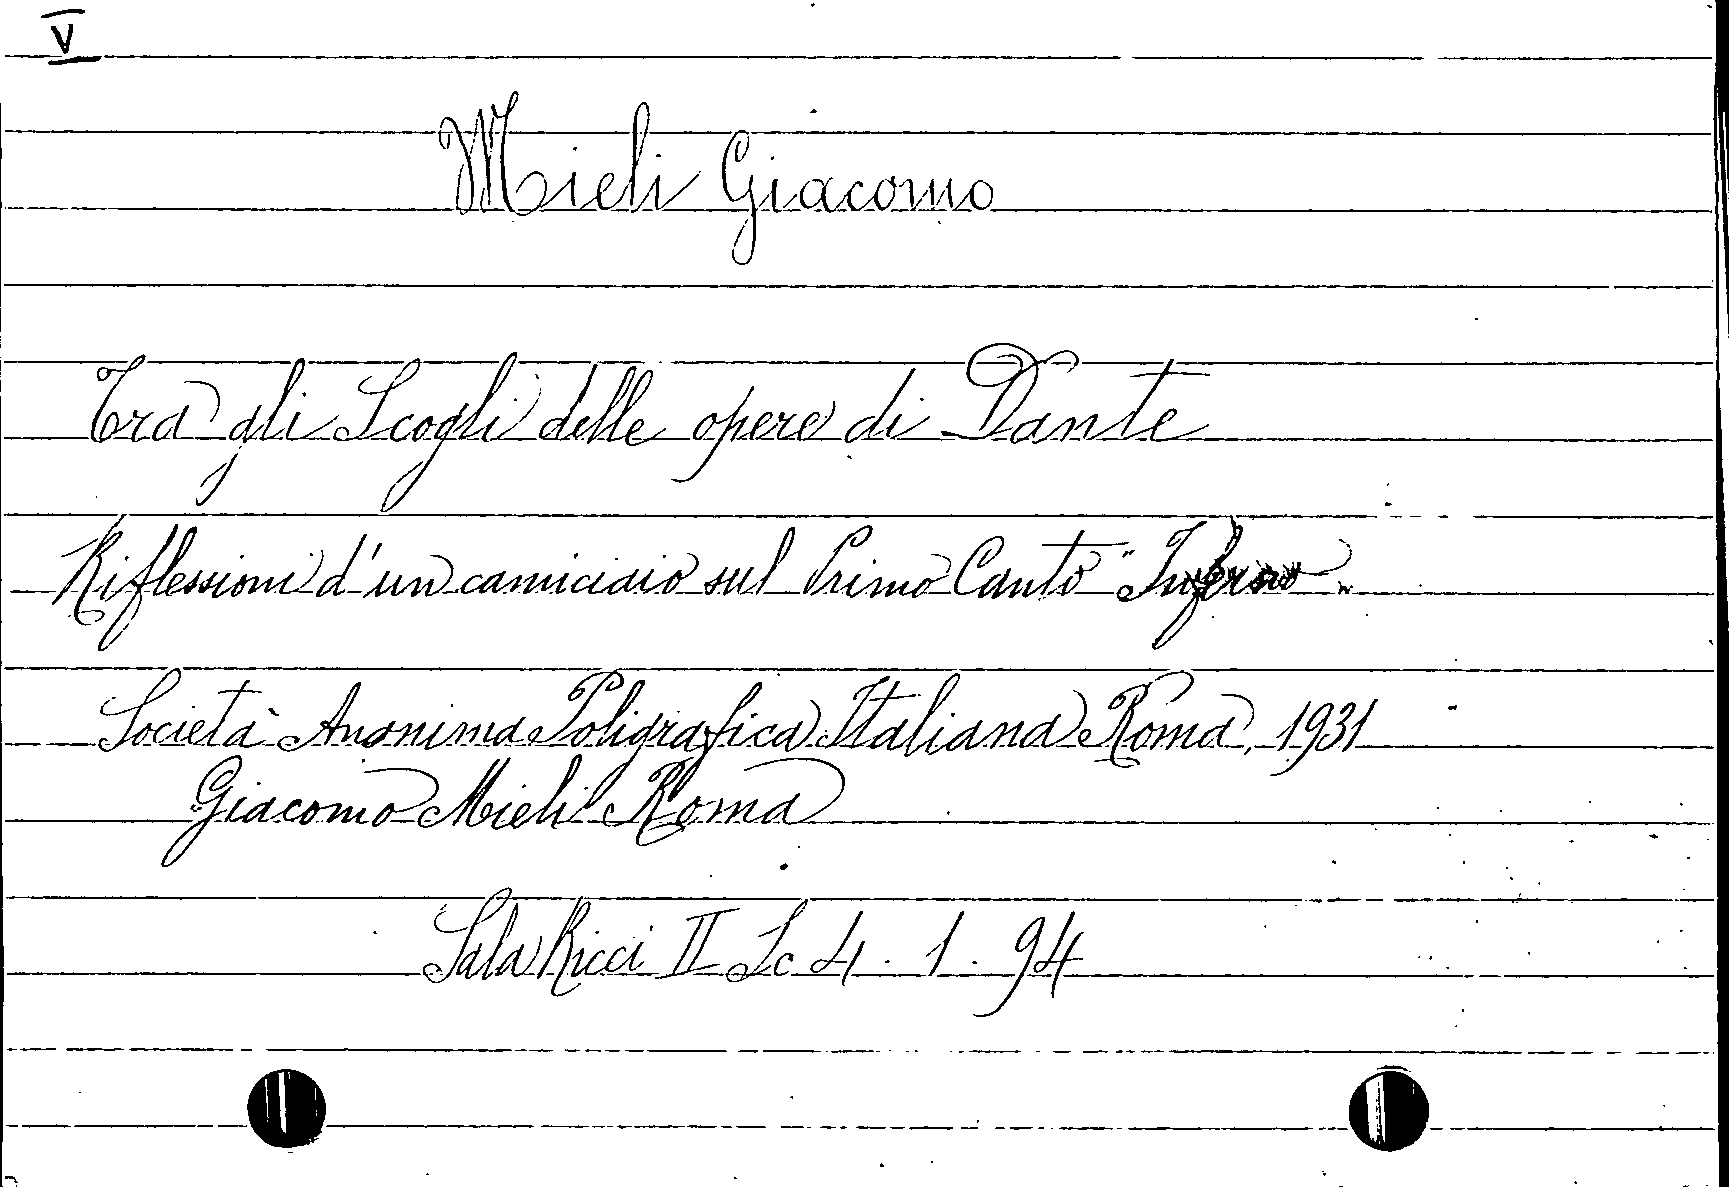 V
Mieli Giacomo
Tra gli Scogli delle opere di Dante
Riflessioni d'un camiciaio sul Primo Canto "Inferno"
Società Anonima Poligrafica Italiana Roma, 1931
Giacomo Mieli Roma
Sala Ricci II Sc 4. 1. 94